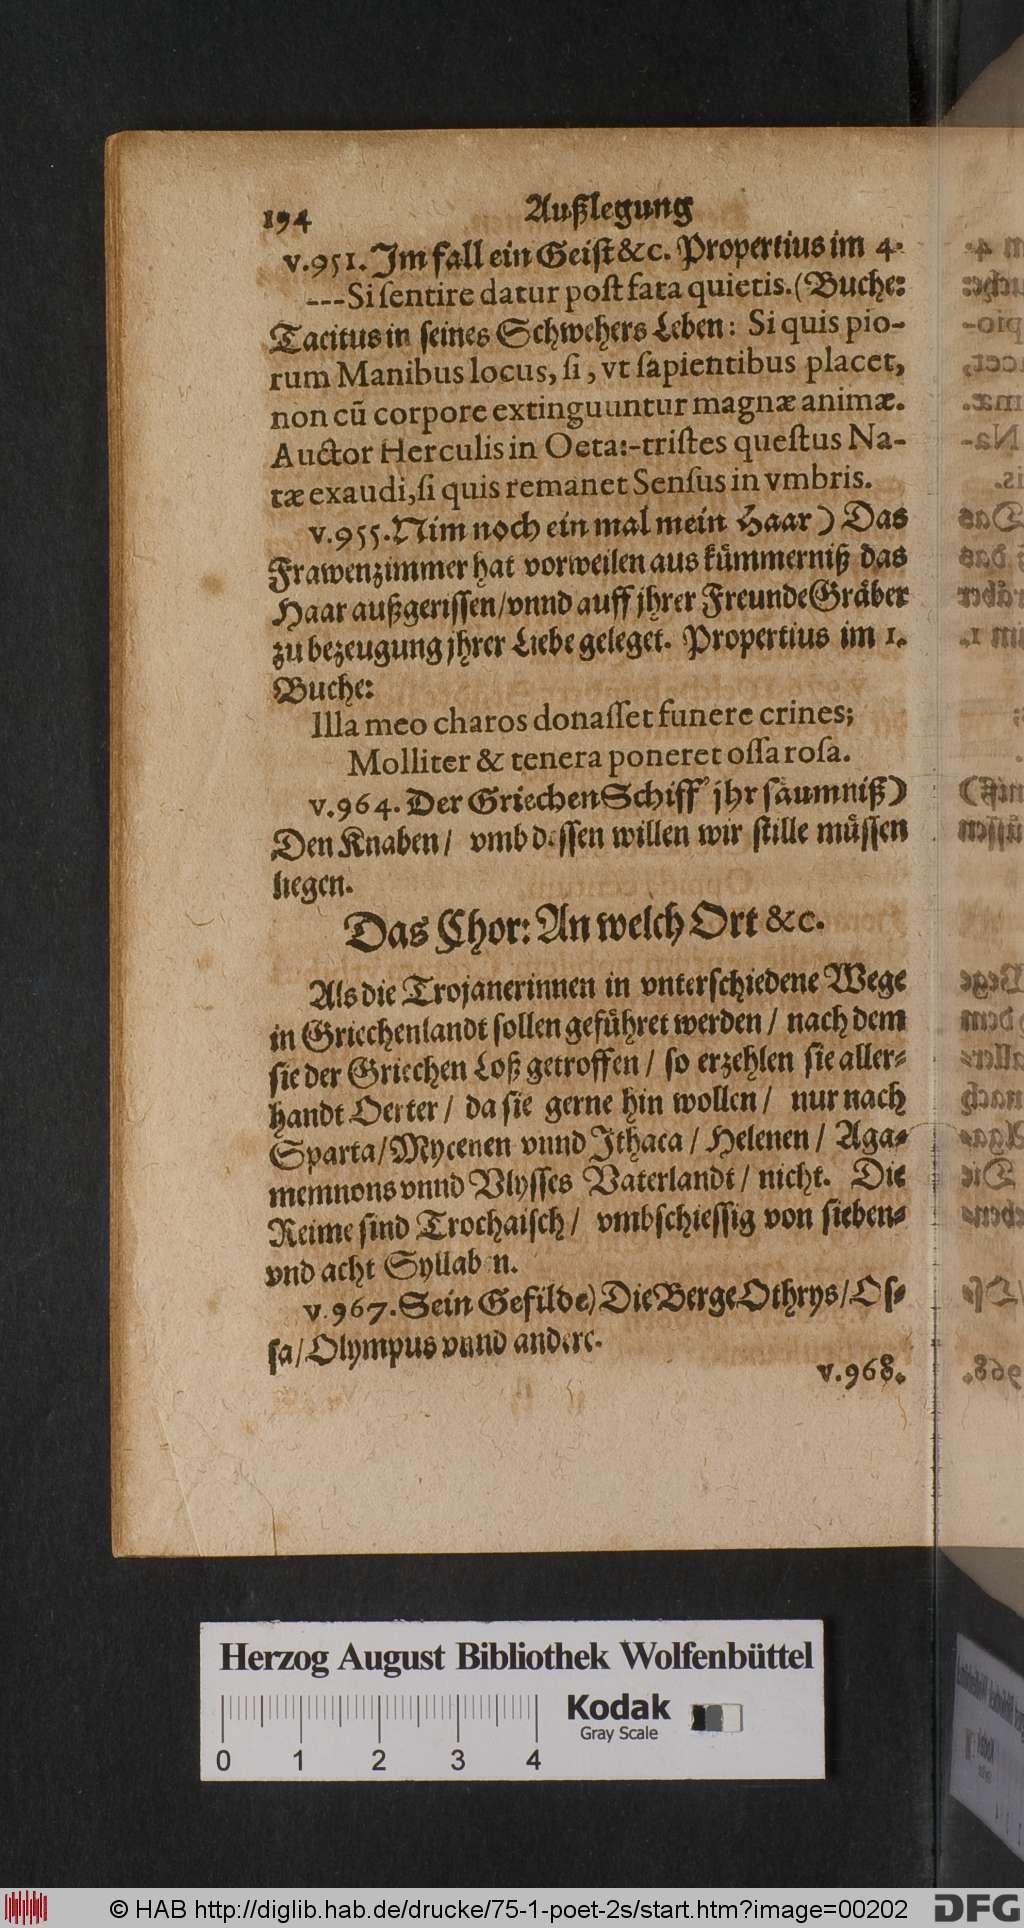 194 Außlegung
v.951. Im fall ein Geist &c. Propertius im 4.
---Si sentire datur post fata quietis. (Buche:
Tacitus in seines Schwehers Leben: Si quis pio-
rum Manibus locus, si, vt sapientibus placet,
non cũ corpore extinguuntur magnæ animæ.
Auctor Herculis in Oeta:-tristes questus Na-
tæ exaudi, si quis remanet Sensus in vmbris.
v.955. Nim noch ein mal mein Haar) Das
Frawenzimmer hat vorweilen aus kuͤmmerniß das
Haar außgerissen/vnnd auff jhrer Freunde Graͤber
zu bezeugung jhrer Liebe geleget. Propertius im 1.
Buche:
Illa meo charos donasset funere crines;
Molliter & tenera poneret ossa rosa.
v.964. Der Griechen Schiff' jhr saͤumniß)
Den Knaben/ vmb dessen willen wir stille muͤssen
liegen.
Das Chor: An welch Ort &c.
Als die Trojanerinnen in vnterschiedene Wege
in Griechenlandt sollen gefuͤhret werden/ nach dem
sie der Griechen Loß getroffen/ so erzehlen sie aller-
handt Oerter/ da sie gerne hin wollen/ nur nach
Sparta/Mycenen vnnd Ithaca/ Helenen/ Aga-
memnons vnnd Vlysses Vaterlandt/ nicht. Die
Reime sind Trochaisch/ vmbschiessig von sieben-
vnd acht Syllaben.
v.967. Sein Gefilde) Die Berge Othrys/Os-
sa/Olympus vnnd andere.
v.968.
Herzog August Bibliothek Wolfenbüttel
Kodak
Gray Scale
0 1 2 3 4
© HAB http://diglib.hab.de/drucke/75-1-poet-2s/start.htm?image=00202
DFG